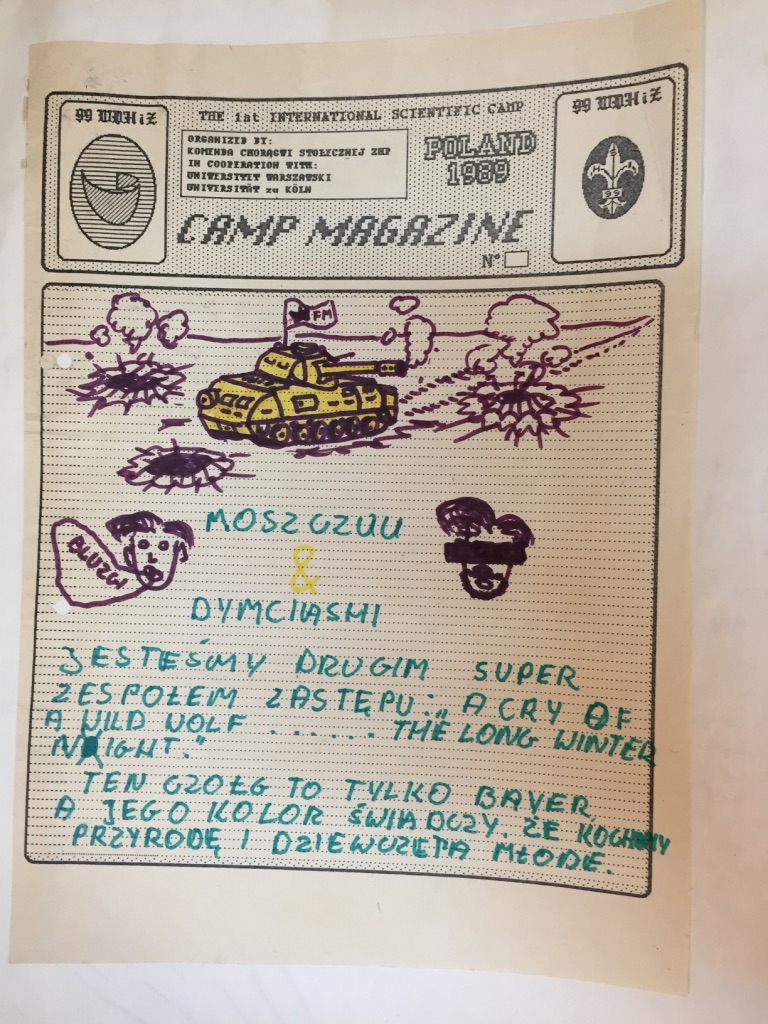 99 WDHiZ
THE 1st INTERNATIONAL SCIENTIFIC CAMP
99 WDHiZ
ORGANIZED BY:
KOMENDA CHORĄGWI STOŁECZNEJ ZHP
IN COOPERATION WITH:
UNIWERSYTET WARSZAWSKI
UNIVERSITÄT zu KÖLN
POLAND
1989
99
CAMP MAGAZINE
N°
FM
BLUZGI
MOSZCZUU
&
DYMCIASMI
JESTEŚMY DRUGIM SUPER
ZESPOŁEM ZASTĘPU: „A CRY OF
A WILD WOLF ...... THE LONG WINTER
NIGHT."
TEN CZOŁG TO TYLKO BAYER,
A JEGO KOLOR ŚWIADCZY, ŻE KOCHAMY
PRZYRODĘ I DZIEWCZĘTA MŁODE.